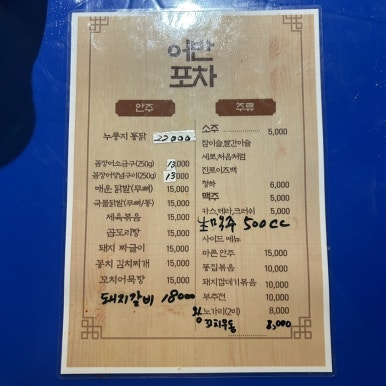 어반
포차
안주
누룽지 통닭 22000
꼼장어소금구이(250g) 13,000
꼼장어양념구이(250g) 13,000
매운 닭발(무뼈) 15,000
국물닭발(무뼈/통) 15,000
제육볶음 15,000
곱도리탕 15,000
돼지 짜글이 15,000
꽁치 김치찌개 15,000
꼬치어묵탕 15,000
돼지갈비 18000
주류
소주 5,000
참이슬,빨간이슬
새로,처음처럼
진로이즈백
청하 6,000
맥주 5,000
카스,테라,크러쉬 5,000
생맥주 500CC
사이드 메뉴
마른 안주 15,000
똥집볶음 10,000
돼지껍데기볶음 10,000
부추전 10,000
왕노가리(2미) 8,000
꼬치우동 8,000